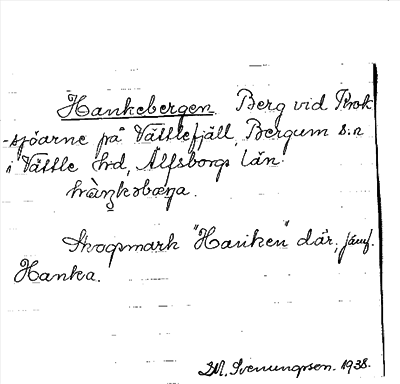 Hankebergen. Berg vid Krok
-sjöarne på Vättlefjäll, Bergum s:n
i Vättle hd, Älfsborgs län.
Skogsmark "Hanken" där, jämf.
Hanka.
D.M. Svenungsson. 1938.